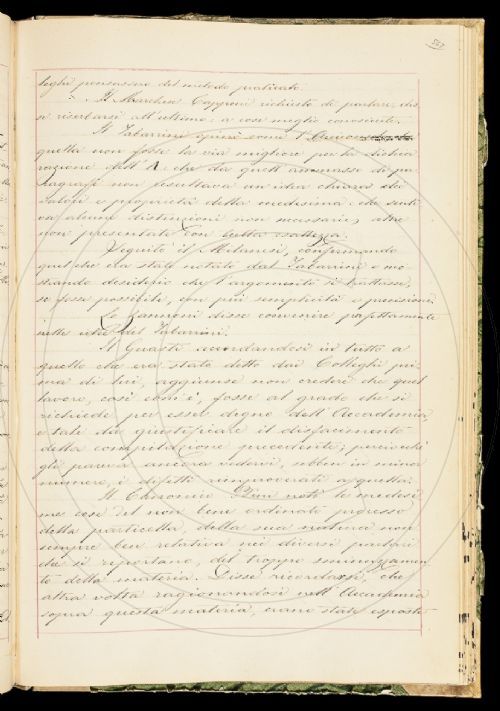 leghi pensassero del metodo praticato.
Il Marchese Capponi richiesto di parlare, dis
se riserbarsi all'ultimo: a cose meglio conosciute.
Il Tabarrini opinò come l'
quella non fosse la via migliore per la dichia
razione dell'A che da quell'ammasso di pa
ragrafi non resultava un'idea chiara dei
valori e proprietà della medesima: che senti
va alcune distinzioni non necessarie, altre
non presentate con bella esattezza.
Seguitò il Milanesi, confermando
quel che era stato notato dal Tabarrini e mo
strando desiderio che l'argomento si trattasse,
se fosse possibile, con più semplicità e precisione.
Lo Zannoni disse convenire perfettamente
nelle idee del Tabarrini.
Il Guasti accordandosi in tutto a
quello che era stato detto dai Colleghi pri
ma di lui, aggiunse non credere che quel
lavoro, così com'è, fosse al grado che si
richiede per esser degno dell'Accademia,
e tale da giustificare il disfacimento
della compilazione precedente; perciocchè
gli pareva ancora vedervi, sebben in minor
numero, i difetti rimproverati a quella.
Il Canonico Bini notò le medesi
me cose del non bene ordinato ingresso
della particella, della sua natura non
sempre ben relativa nei diversi paragrafi
che si riportano, del troppo sminuzzamen
to della materia. Disse ricordarsi, che
altra volta ragionandosi nell'Accademia
sopra questa materia, erano state esposte